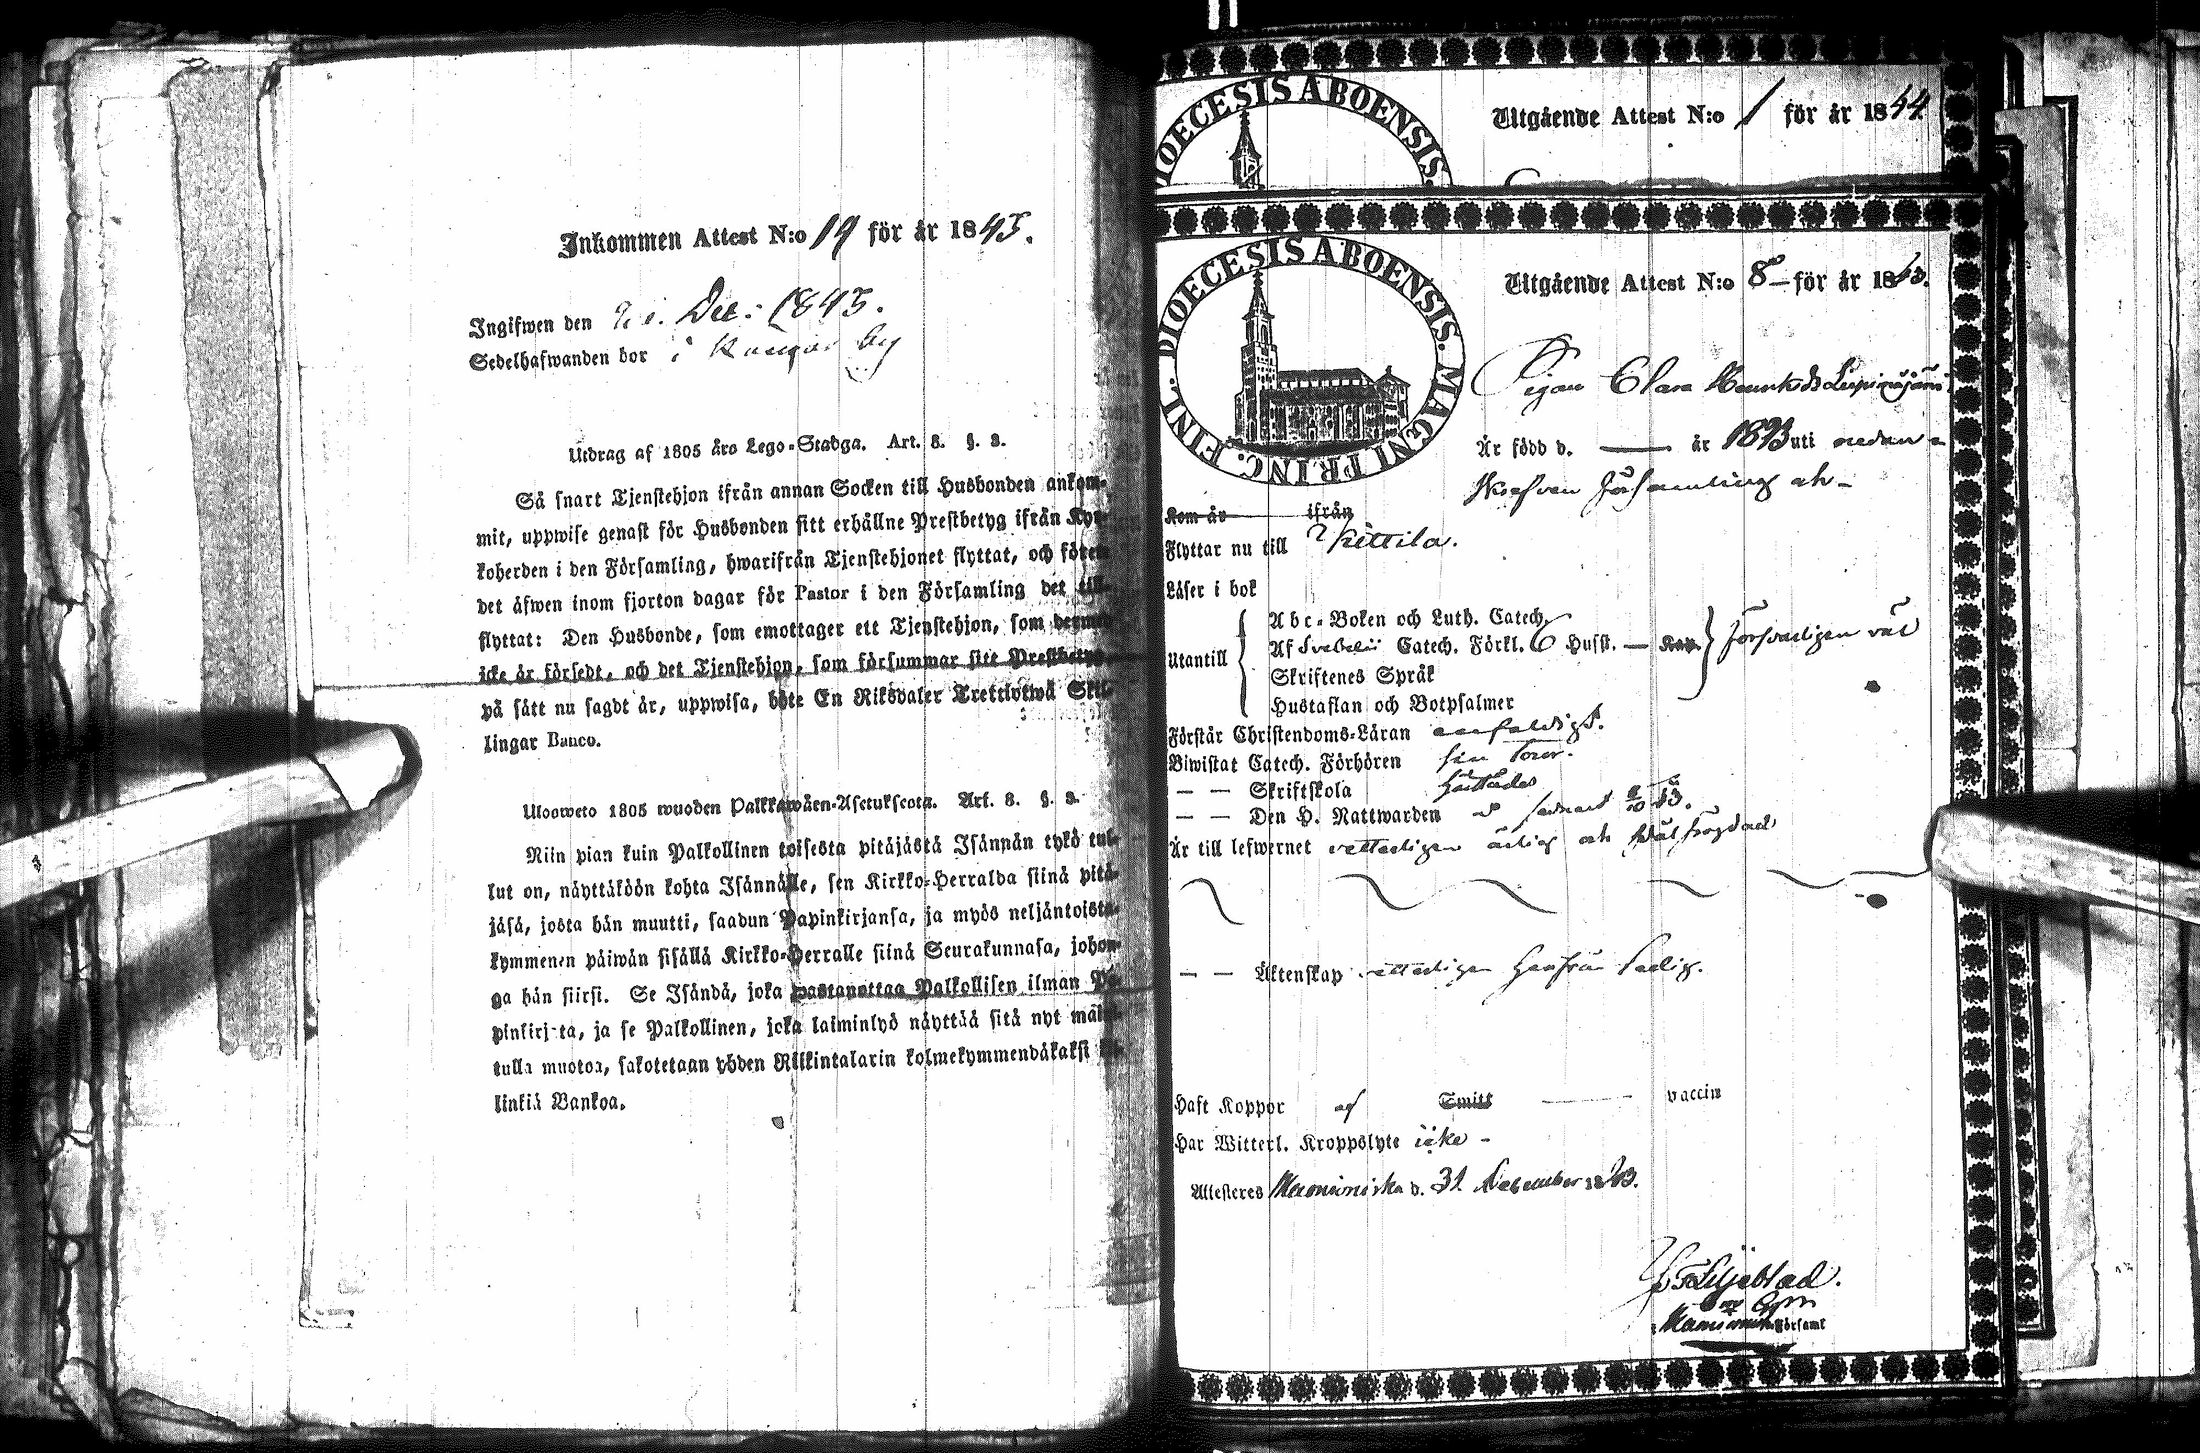 Inkommen Attest N:o 19 för år 1845.
Ingifwen den Dec: 1845.
Sedelhafwanden bor i by
Utdrag af 1805 års Lego-Stadga. Art. 8. §. 2.
Så snart Tjenstehjon ifrån annan Socken till Husbonden ankom-
mit, uppwise genast för Husbonden sitt erhållne Prestbetyg ifrån Kyr-
koherden i den Församling, hwarifrån Tjenstehjonet flyttat, och förete
det äfwen inom fjorton dagar för Pastor i den Församling det till-
flyttat: Den Husbonde, som emottager ett Tjenstehjon, som dermed
icke är försedt, och det Tjenstehjon, som försummar sitt Prestbetyg,
på sätt nu sagdt är, uppwisa, böte En Riksdaler Trettiotwå Skil-
lingar Banco.
Ulosweto 1805 wuoden Palkkawäen-Asetuksesta. Art. 8. §. 2.
Niin pian kuin Palkollinen toisesta pitäjästä Isännän tykö tul-
lut on, näyttäköön kohta Isännälle, sen Kirkko-Herralda siinä pitä-
jäsä, josta hän muutti, saadun Papinkirjansa, ja myös neljäntoista-
kymmenen päiwän sisällä Kirkko-Herralle siinä Seurakunnasa, johon-
ga hän siirsi. Se Isändä, joka wastanottaa Palkollisen ilman Pa-
pinkirjata, ja se Palkollinen, joka laiminlyö näyttää sitä nyt mäini-
tulla muotoa, sakotetaan yhden Riikintalarin kolmekymmendäkaksi
linkiä Bankoa.
DIOECESIS ABOENSIS.
Utgående Attest N:o 1 för år 1844
DIOECESIS ABOENSIS. MAGNI PRINC. FINL.
Utgående Attest N:o 8 för år 1843.
Pigan Clara
Är född d. — år 1823 uti nedan-
skrefven Församling och
Kom år ifrån
Flyttar nu till Kittilä.
Läser i bok
Utantill
Abc-Boken och Luth. Catech.
Af Svebelii Catech. Förkl. 6 Hufst. — Kap. försvarligen väl
Skriftenes Språk
Hustaflan och Botpsalmer
Förstår Christendoms-Läran enfaldigt.
Biwistat Catech. Förhören sin
— — Skriftskola
— — Den H. Nattwarden senast 43.
Är till lefwernet veterligen ärlig och wälfrägdad
— — Äktenskap veterligen härifrån ledig.
Haft Koppor af Smitt — vaccin
Har Witterl. Kroppslyte icke -
Attesteras Muonioniska d. 31 December 1843.
Liljeblad.
Församl